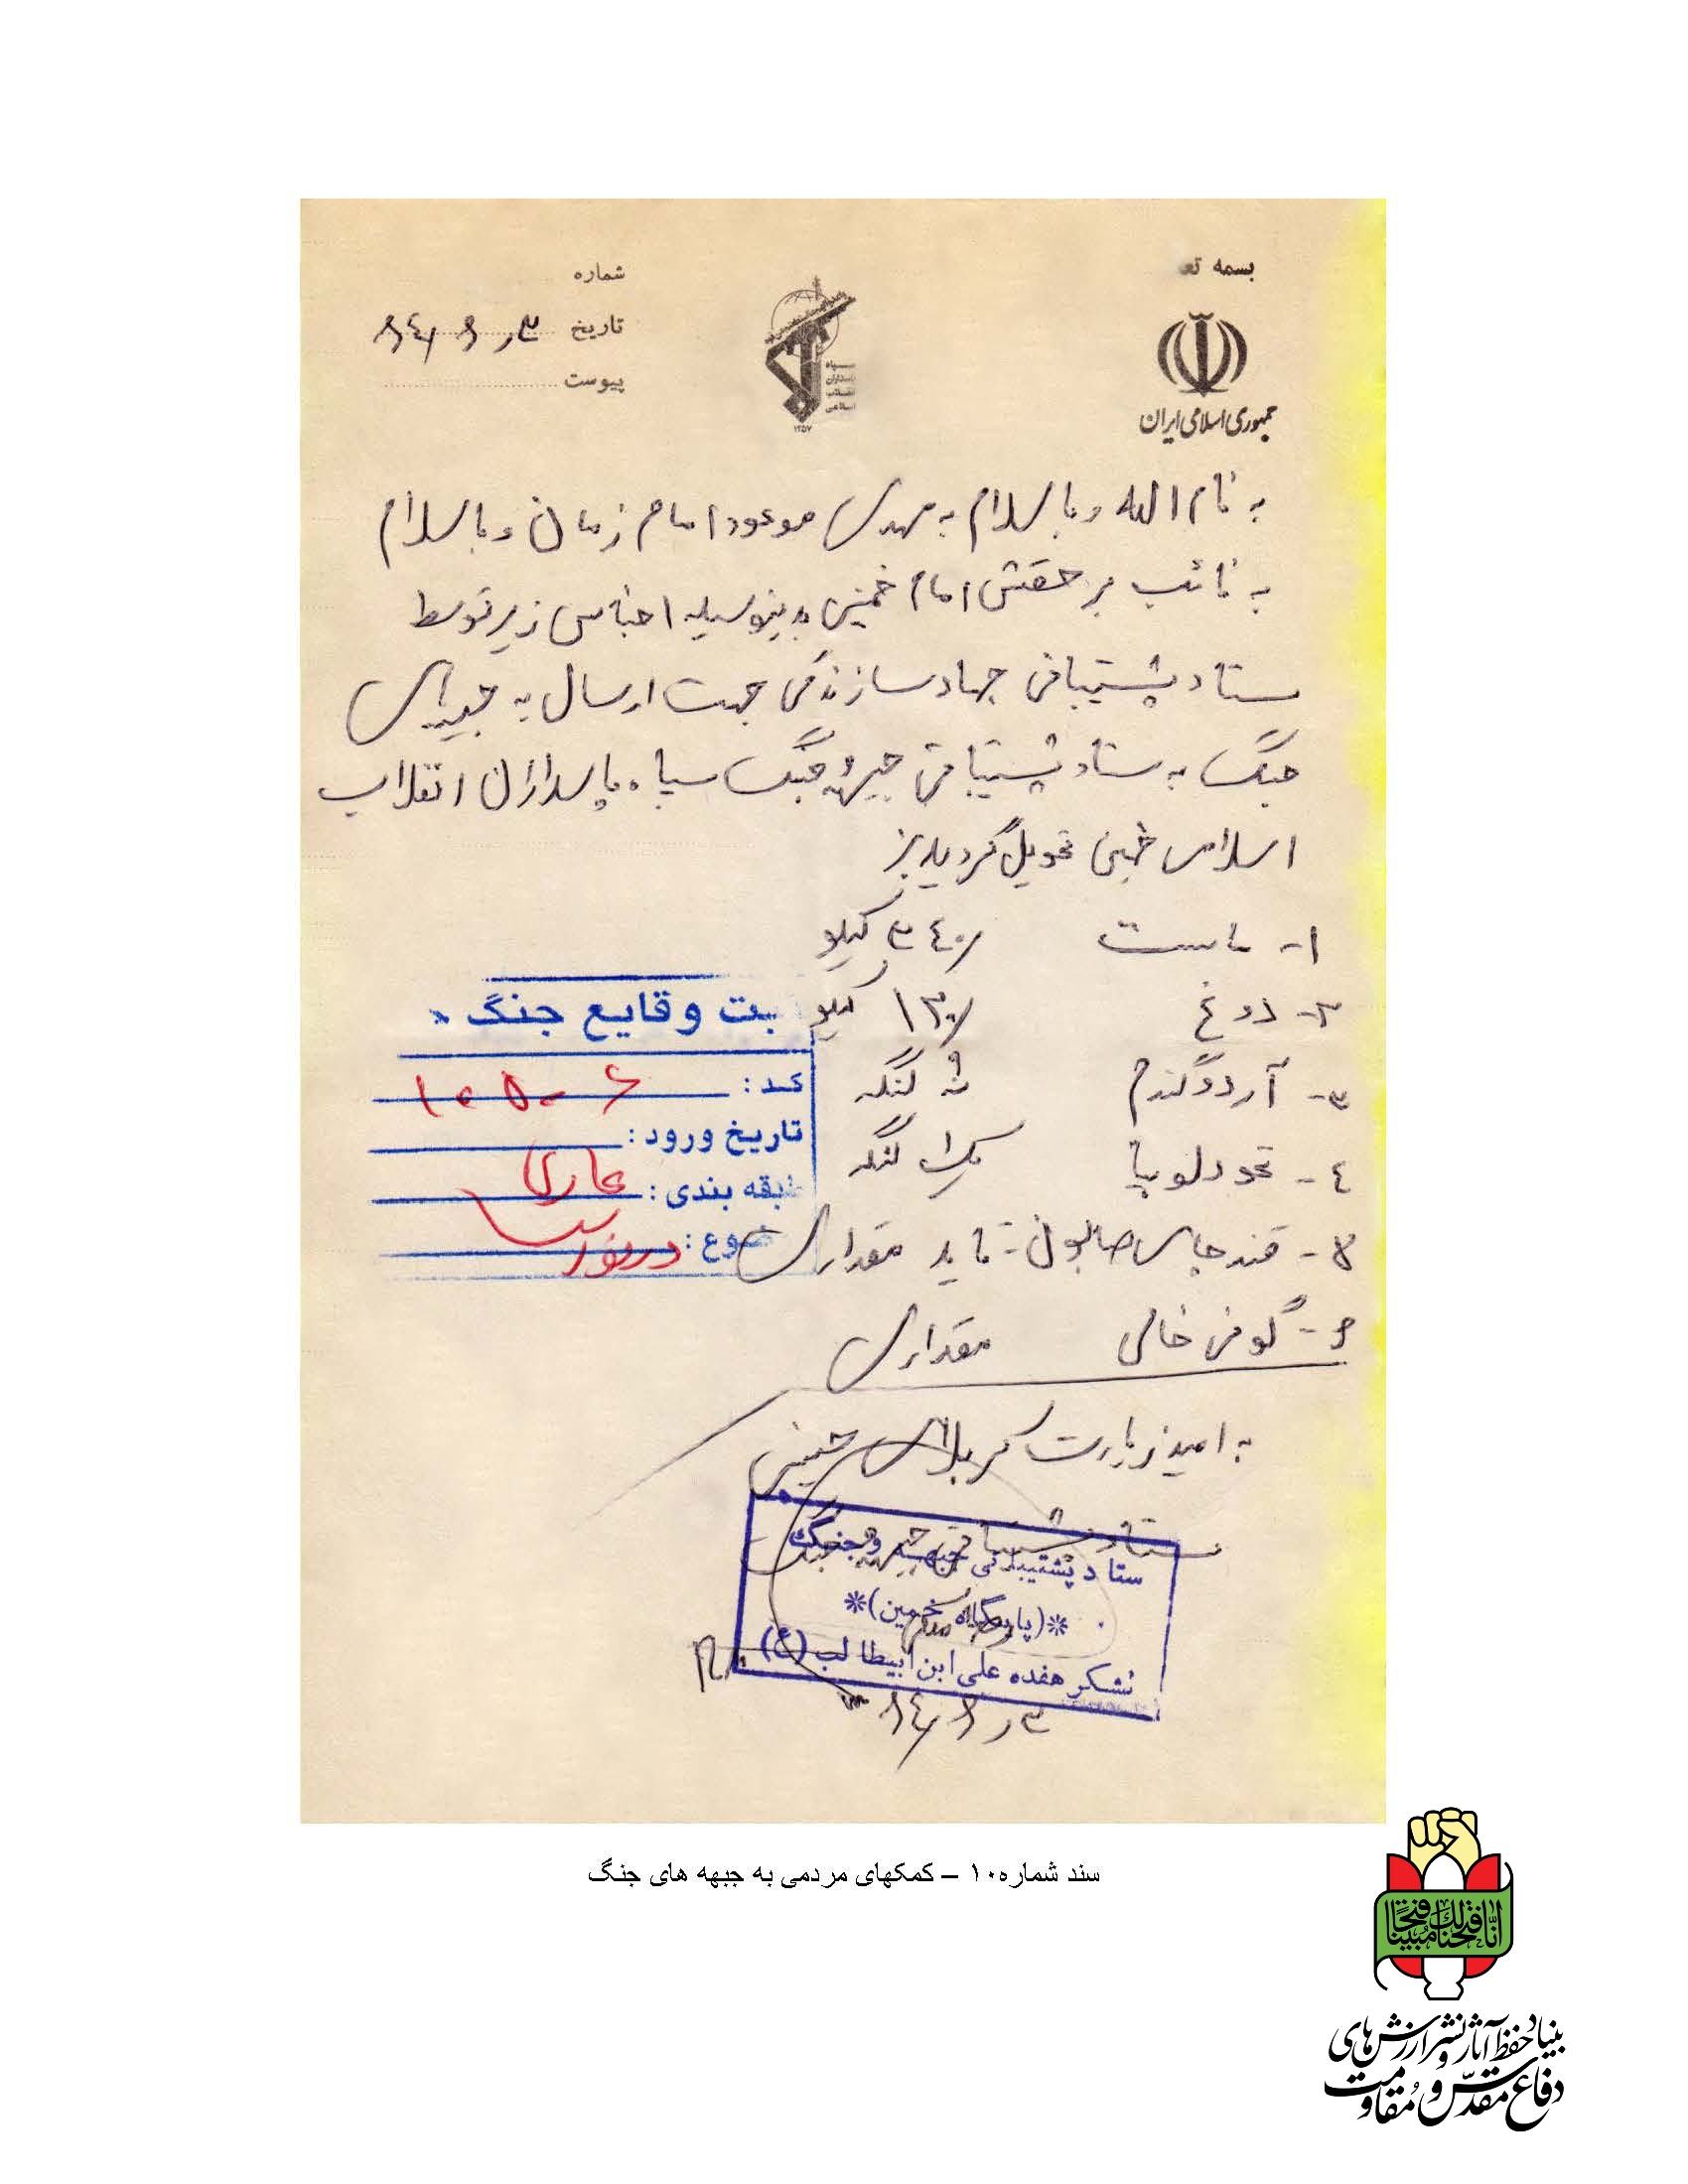 بسمه تع
جمهوری اسلامی ایران
۱۳۵۷
شماره
تاریخ
پیوست
به نام الله و با سلام به مهدی موعود امام زمان و با سلام
به نائب بر حقش امام خمینی بدینوسیله اجناس زیر توسط
ستاد پشتیبانی جهاد سازندگی جهت ارسال به جبهه‌های
جنگ به ستاد پشتیبانی جبهه و جنگ سپاه پاسداران انقلاب
اسلامی خمین تحویل گردید
۱- ماست ۳۴۰/ کیلو
۲- دوغ ۱۳۰/ کیلو
۳- آرد گندم نه لنگه
۴- نخود لوبیا یک لنگه
۵- قند چای صابون - تاید مقداری
۶- گونی خالی مقداری
بت وقایع جنگ »
کد : ۱۰۵۰۶
تاریخ ورود :
طبقه بندی : عادی
ضوع :
به امید زیارت کربلای حسینی
ستاد پشتیبانی جبهه و جنگ
ستاد پشتیبانی جبهه و جنگ
*(پایگاه خمین)*
لشکر هفده علی ابن ابیطالب (ع)
سند شماره۱۰ – کمکهای مردمی به جبهه های جنگ
انّا فتحنا لک فتحًا مُبینًا
بنیاد حفظ آثار و نشر ارزش‌های
دفاع مقدّس و مُقاومت